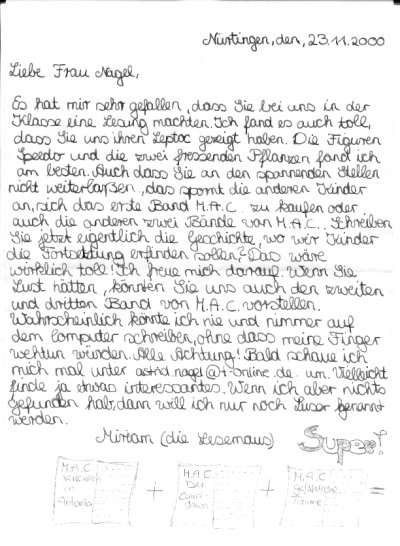 Nürtingen, den, 23.11.2000
Liebe Frau Nagel,
Es hat mir sehr gefallen, dass Sie bei uns in der
Klasse eine Lesung machten. Ich fand es auch toll,
dass Sie uns ihren Leptoc gezeigt haben. Die Figuren
Speedo und die zwei fressenden Pflanzen fand ich
am besten. Auch dass Sie an den spannenden Stellen
nicht weiterlaßen, das spornt die anderen Kinder
an, sich das erste Band M.A.C. zu kaufen oder
auch die anderen zwei Bände von M.A.C.. Schreiben
Sie jetzt eigentlich die Geschichte, wo wir Kinder
die Fortsetzung erfinden sollen? Das wäre
wirklich toll! Ich freue mich darauf. Wenn Sie
Lust hätten, könnten Sie uns auch den zweiten
und dritten Band von M.A.C. vorstellen.
Wahrscheinlich könnte ich nie und nimmer auf
dem Computer schreiben, ohne dass meine Finger
wehtun würden. Alle Achtung! Bald schaue ich
mich mal unter astrid.nagel@t-online.de. um. Vielleicht
finde ja etwas interessantes. Wenn ich aber nichts
gefunden hab, dann will ich nur noch Luser genannt
werden.
Miriam (die Lesemaus) Super!
M.A.C
in
+
M.A.C
Der
Count
down
+
M.A.C
Träume
=